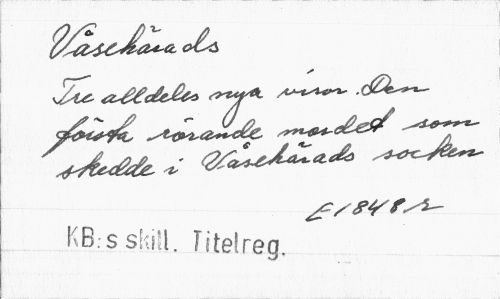 Våsehärads
Tre alldeles nya visor. Den
första rörande mordet som
skedde i Våsehärads socken
E 1848 r
KB:s skill. Titelreg.